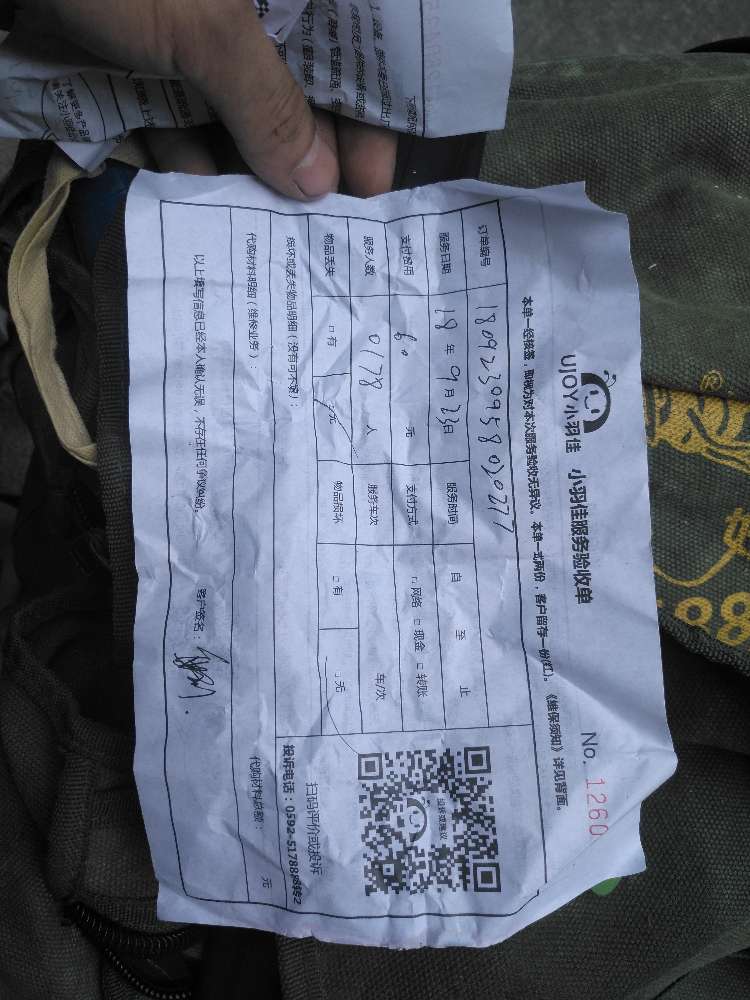 UJOY小羽佳 小羽佳服务验收单
No. 1260
本单一经接签，即视为对本次服务验收无异议。本单一式两份，客户留存一份(红)。《维保须知》详见背面。
订单编号 1809230958020277
服务日期 18 年 9 月 23 日 服务时间 自 至 止
支付费用 60 元 支付方式 □ 网络 □ 现金 □ 转账
服务人数 0178 人 服务车次 车/次
物品丢失 □ 有 □ 无 物品损坏 □ 有 □ 无
损坏或丢失物品明细（没有可不填）：
投诉或建议
扫码评价或投诉
投诉电话：0592-5178898转2
代购材料明细（维修业务）： 代购材料总额： 元
以上填写信息已经本人确认无误，不存在任何争议纠纷。 客户签名：